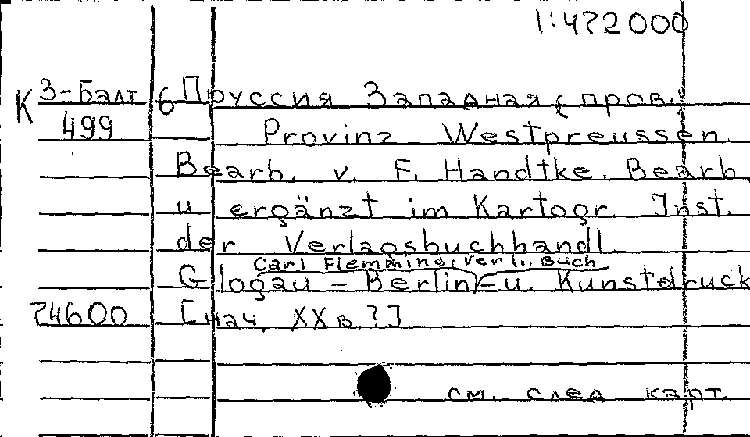 1:472000
К 3-Балт 6 Пруссия Западная, пров.
499 Provinz Westpreussen.
Bearb. v. F. Handtke. Bearb.
u. ergänzt im Kartogr. Inst.
der Verlagsbuchhandl.
Carl Flemming, Verl., Buch
Glogau – Berlin, – u. Kunstdruck
74600 [нач. XX в.?]
см. след. карт.